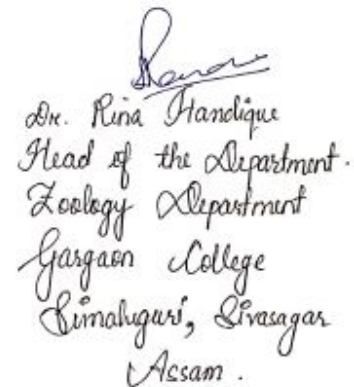 Dr. Rina Handique
Head of the Department.
Zoology Department
Gargaon College
Simaluguri, Sivasagar
Assam.